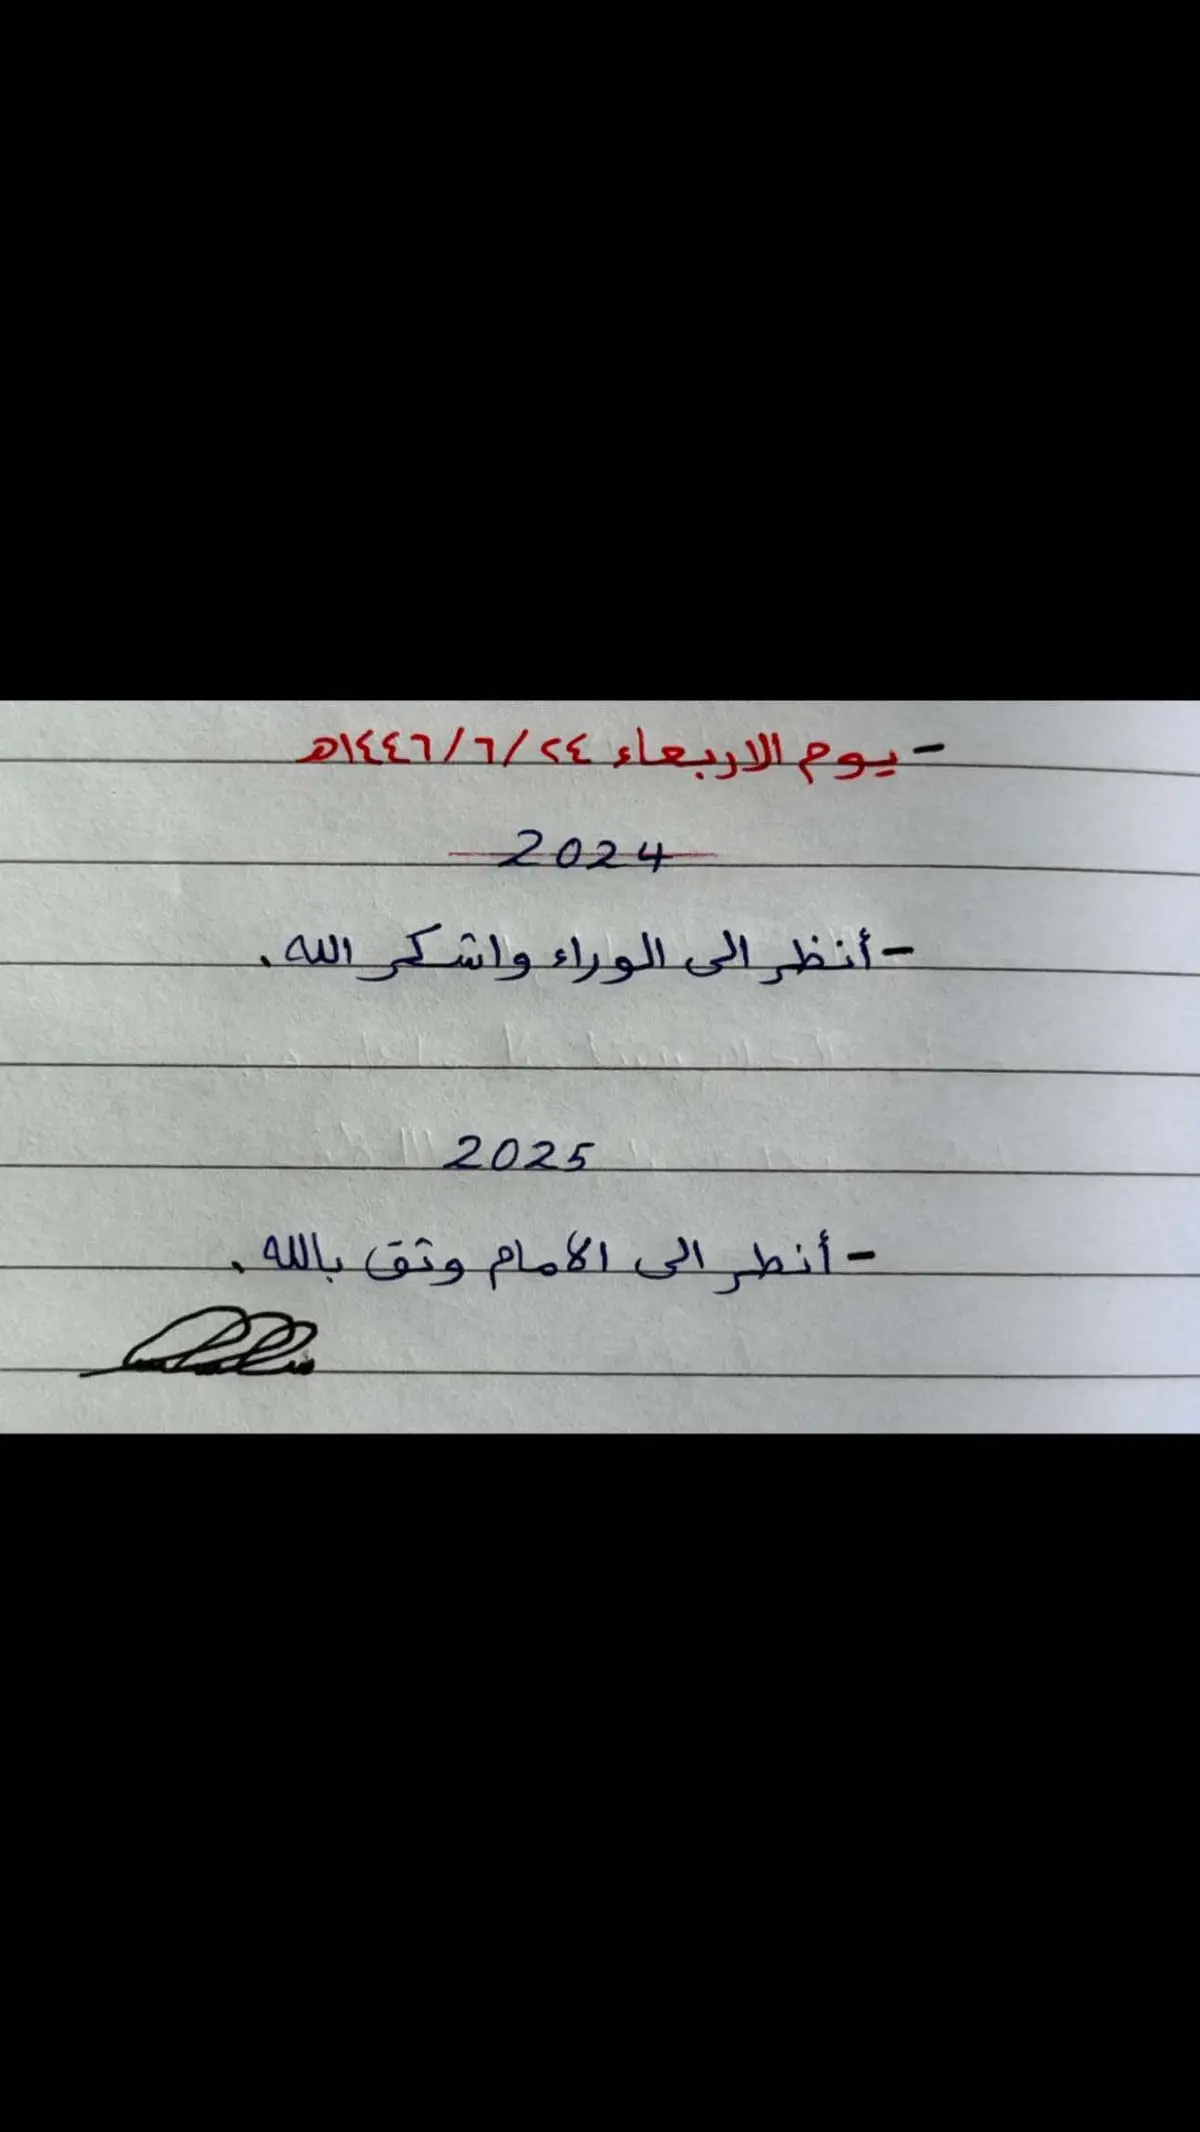 - يوم الاربعاء ٢٤/٦/١٤٤٦هـ
2024
- أنظر الى الوراء واشكر الله.
2025
- أنطر الى الامام وثق بالله.